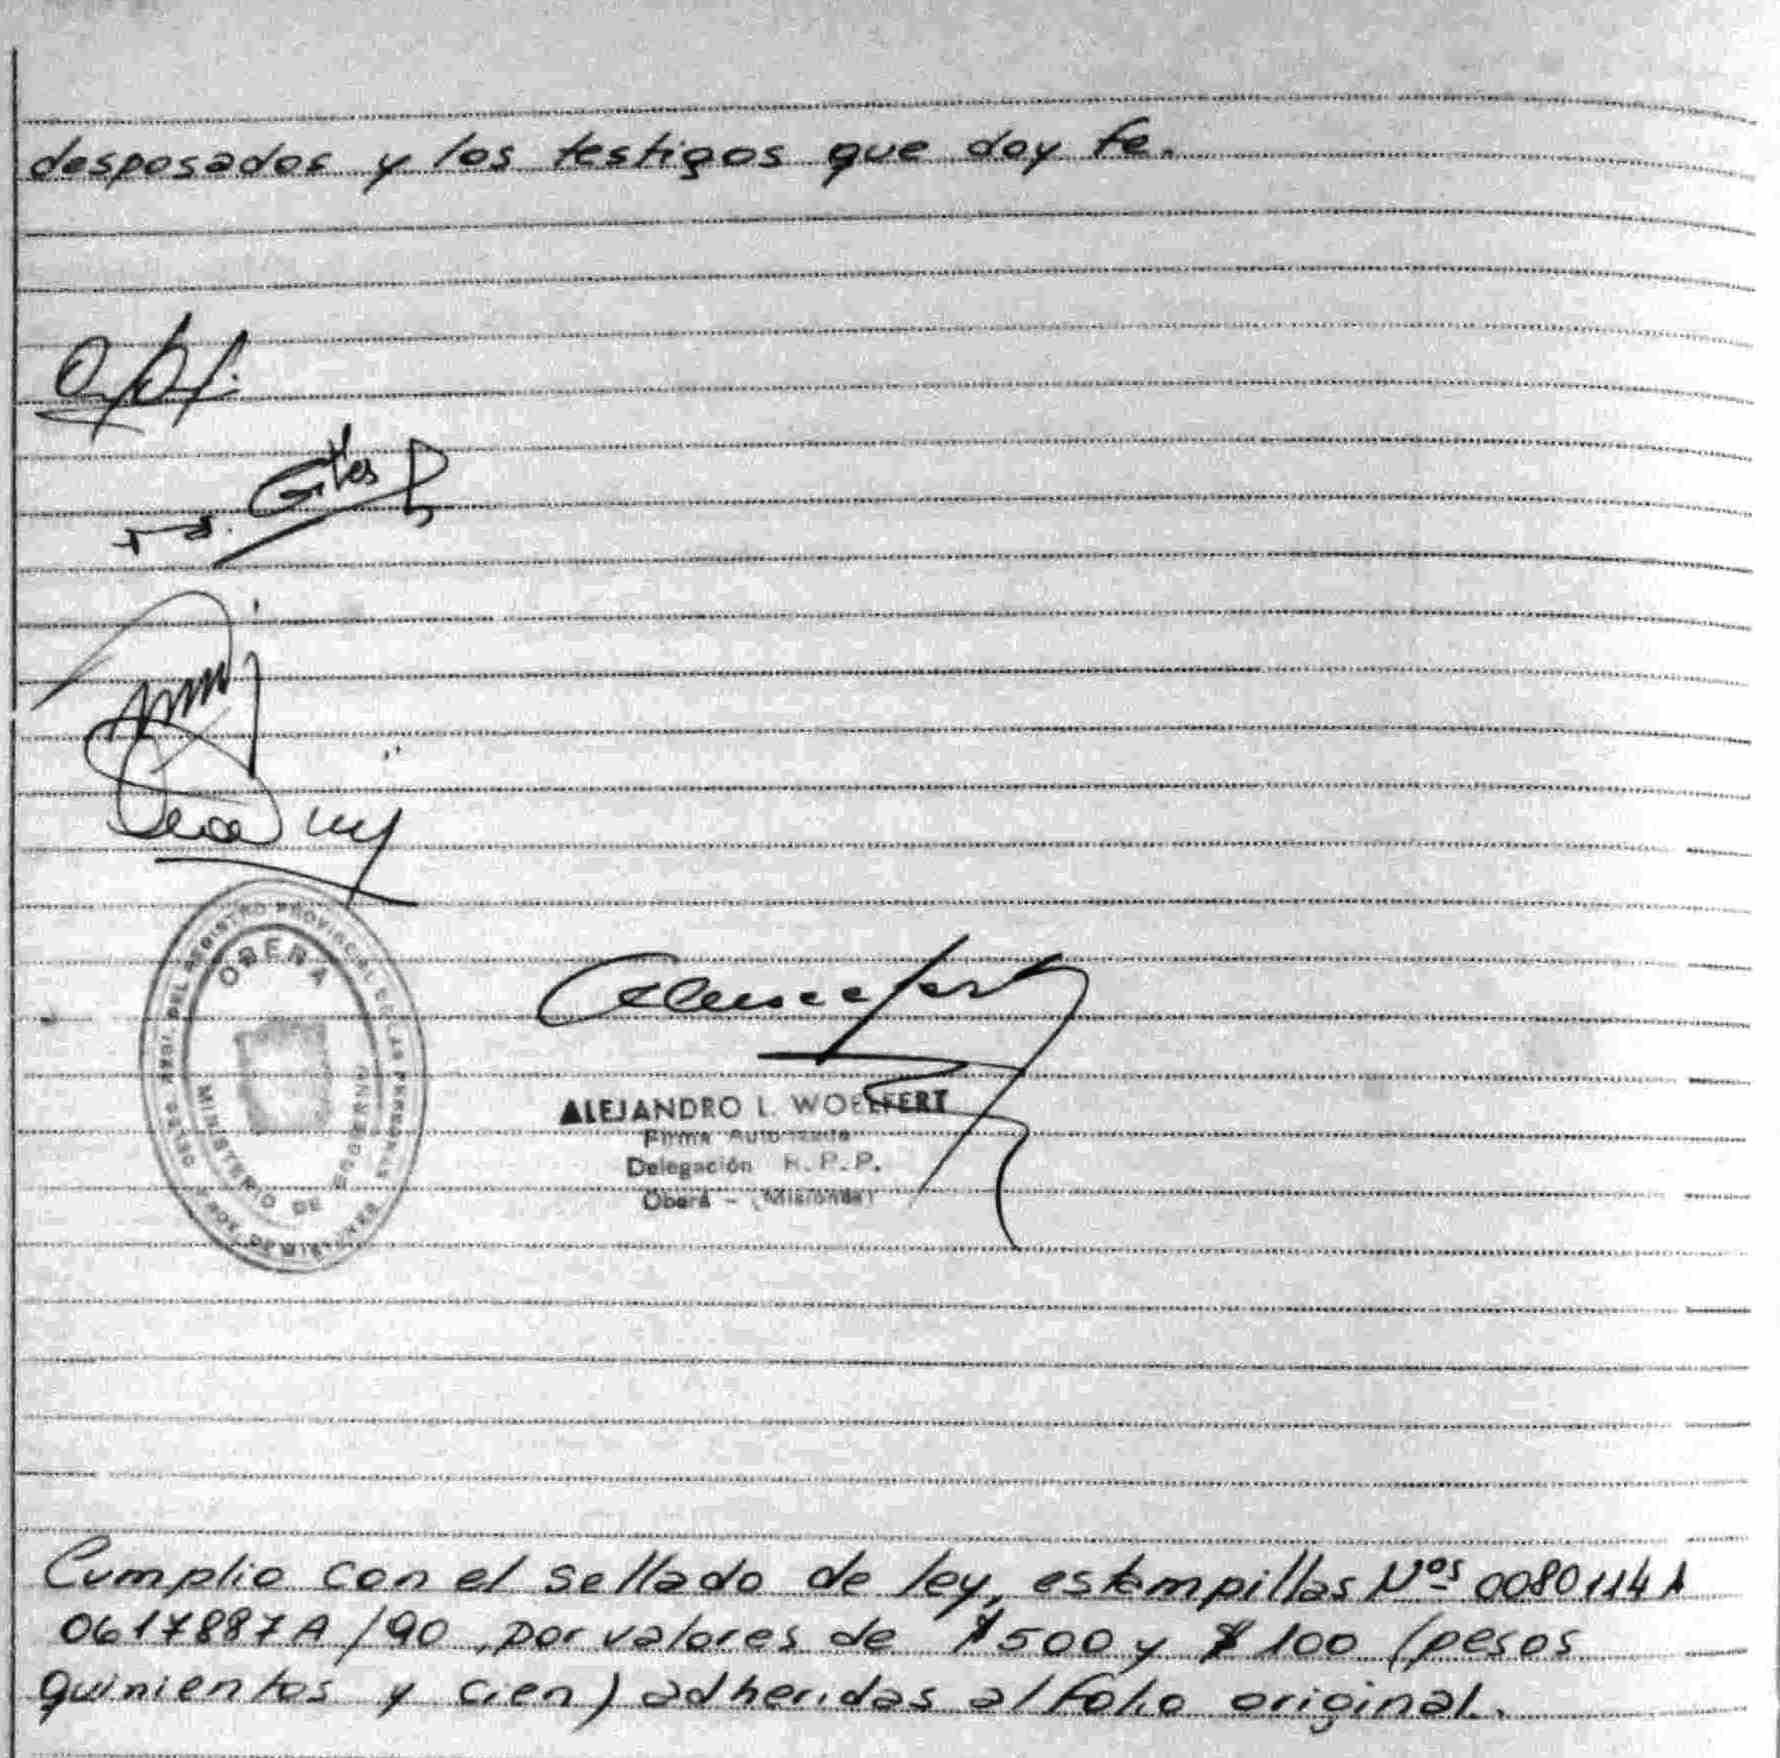 desposados y los testigos que doy fe.
OBERA
MINISTERIO DE GOBIERNO
ALEJANDRO L. WOELFERT
Firma Autorizada
Delegación R.P.P.
Oberá - (Misiones)
Cumplio con el sellado de ley, estampillas Nºs 0080114A
0617887A/90, por valores de $500 y $100 (pesos
quinientos y cien) adheridas al folio original.